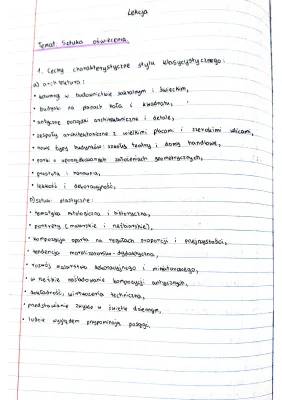 Lekcja
Temat: Sztuka oświecenia.
1. Cechy charakterystyczne stylu klasycystycznego:
a) architektura:
• kolumny w budownictwie sakralnym i świeckim,
• budynki na planach koła i kwadratu,
• antyczne porządki architektoniczne i detale,
• zespoły architektoniczne z wielkimi placami i szerokimi ulicami,
• nowe typy budynków: szkoły, teatry, domy handlowe,
• parki o uporządkowanych założeniach geometrycznych,
• prostota i harmonia,
• lekkość i dekoracyjność,
b) sztuki plastyczne:
• tematyka mitologiczna i historyczna,
• portrety (malarskie i rzeźbiarskie),
• kompozycja oparta na regułach proporcji i przejrzystości,
• tendencja moralizatorsko-dydaktyczna,
• rozwój malarstwa dekoracyjnego i miniaturowego,
• w rzeźbie naśladowanie kompozycji antycznych,
• dokładność, wirtuozeria techniczna,
• przedstawianie zwykle w świetle dziennym,
• ludzie wyglądem przypominają posągi,